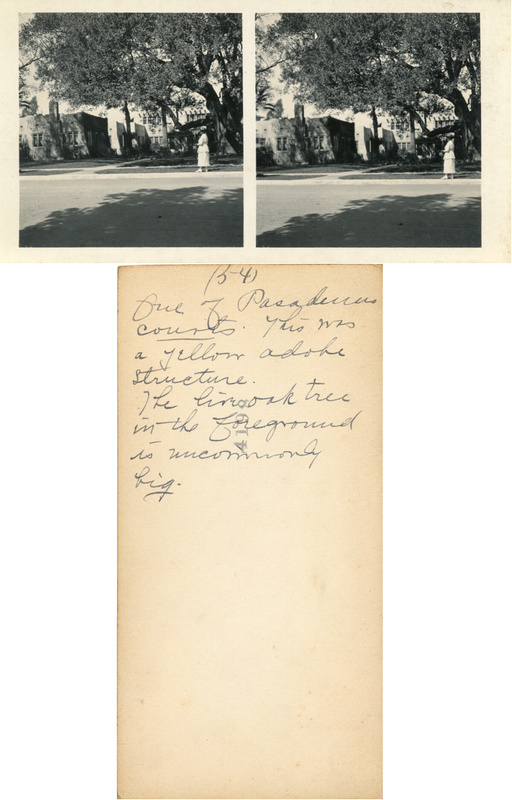 (54)
One of Pasadenas
courts. This was
a yellow adobe
structure.
The live oak tree
in the foreground
is uncommonly
big.